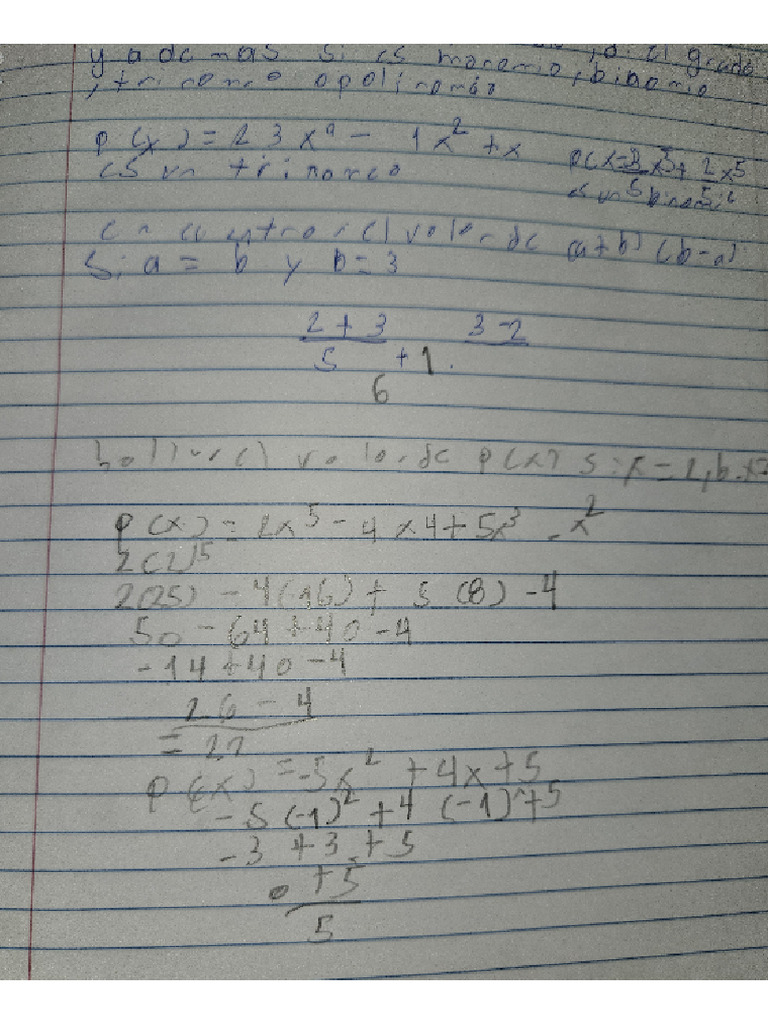 y ademas si es monomio, binomio
, trinomio o polinomio
P(x) = 23x⁹ - 1x² + x
es un trinomio
P(x=3/5 x⁵+ 2/5 x⁵
es un binomio
encuentra el valor de (a+b) (b-a)
Si a = b y b = 3
2 + 3 3 - 2
5 + 1.
6
hallar el valor de P(x) si x = 2, b
P(x) = 2x⁵ - 4x4 + 5x³ - x²
2(2)⁵
2(25) - 4(16) + 5(8) - 4
50 - 64 + 40 - 4
- 14 + 40 - 4
26 - 4
= 22
P(x) = -5x² + 4x + 5
- 5(-1)² + 4(-1) + 5
- 3 + 3 + 5
0 + 5
5